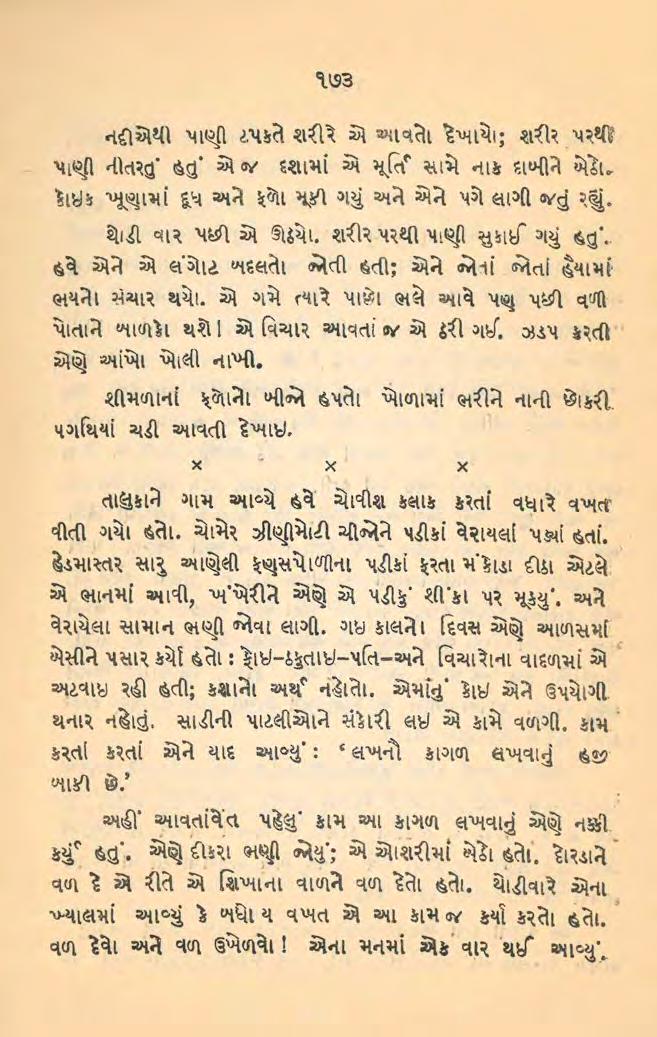 ૧૭૩
નદીએથી પાણી ટપકતે શરીરે એ આવતો દેખાયો; શરીર પરથી
પાણી નીતરતું હતું એ જ દશામાં એ મૂર્તિ સામે નાક દાબીને બેઠો.
કોઇક ખૂણામાં દૂધ અને ફળો મૂકી ગયું અને એને પગે લાગી જતું રહ્યું.
થોડી વાર પછી એ ઊઠ્યો. શરીર પરથી પાણી સુકાઈ ગયું હતું.
હવે એને એ લંગોટ બદલતો જોતી હતી; એને જોતાં જોતાં હૈયામાં
ભયનો સંચાર થયો. એ ગમે ત્યારે પાછો ભલે આવે પણ પછી વળી
પોતાને બાળકો થશે! એ વિચાર આવતાં જ એ ઠરી ગઈ. ઝડપ કરતી
એણે આંખો ખોલી નાખી.
શીમળાનાં ફળોનો બીજો હપતો ખોળામાં ભરીને નાની છોકરી
પગથિયાં ચડી આવતી દેખાઇ.
× × ×
તાલુકાને ગામ આવ્યે હવે ચોવીશ કલાક કરતાં વધારે વખત
વીતી ગયો હતો. ચોમેર ઝીણીમોટી ચીજોને પડીકાં વેરાયલાં પડ્યાં હતાં.
હેડમાસ્તર સારુ આણેલી ફણુસપોળીના પડીકાં ફરતા મંકોડા દીઠા એટલે
એ ભાનમાં આવી, ખંખેરીને એણે એ પડીકું શીંકા પર મૂક્યું. અને
વેરાયેલા સામાન ભણી જોવા લાગી. ગઇ કાલનો દિવસ એણે આળસમાં
બેસીને પસાર કર્યો હતો : ફોઇ–ઠકુતાઇ–પતિ–અને વિચારોના વાદળમાં એ
અટવાઇ રહી હતી; કશાનો અર્થ નહોતો. એમાંનું કોઇ એને ઉપયોગી
થનાર નહોતું. સાડીની પાટલીઓને સંકોરી લઇ એ કામે વળગી. કામ
કરતાં કરતાં એને યાદ આવ્યું : ‘લખનૌ કાગળ લખવાનું હજી
બાકી છે.’
અહીં આવતાંવેંત પહેલું કામ આ કાગળ લખવાનું એણે નક્કી
કર્યું હતું. એણે દીકરા ભણી જોયું; એ ઓશરીમાં બેઠો હતો. દોરડાને
વળ દે એ રીતે એ શિખાના વાળને વળ દેતો હતો. થોડીવારે એના
ખ્યાલમાં આવ્યું કે બધો ય વખત એ આ કામ જ કર્યા કરતો હતો.
વળ દેવો અને વળ ઉખેળવો! એના મનમાં એક વાર થઈ આવ્યું.